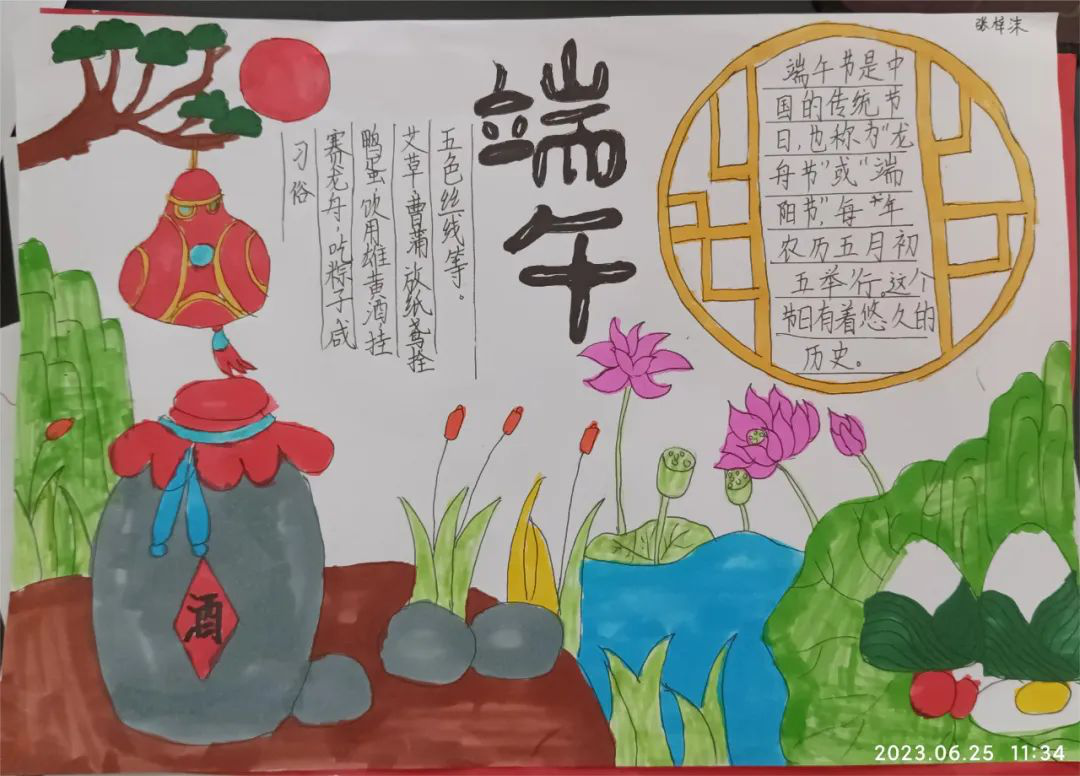 张梓沫
端午
习俗
赛龙舟，吃粽子咸
鸭蛋，饮用雄黄酒挂
艾草，曹蒲放纸鸢拴
五色丝线等。
端午节是中
国的传统节
日，也称为“龙
舟节”或“端
阳节”，每年
农历五月初
五举行。这个
节日有着悠久的
历史。
酒
2023.06.25 11:34